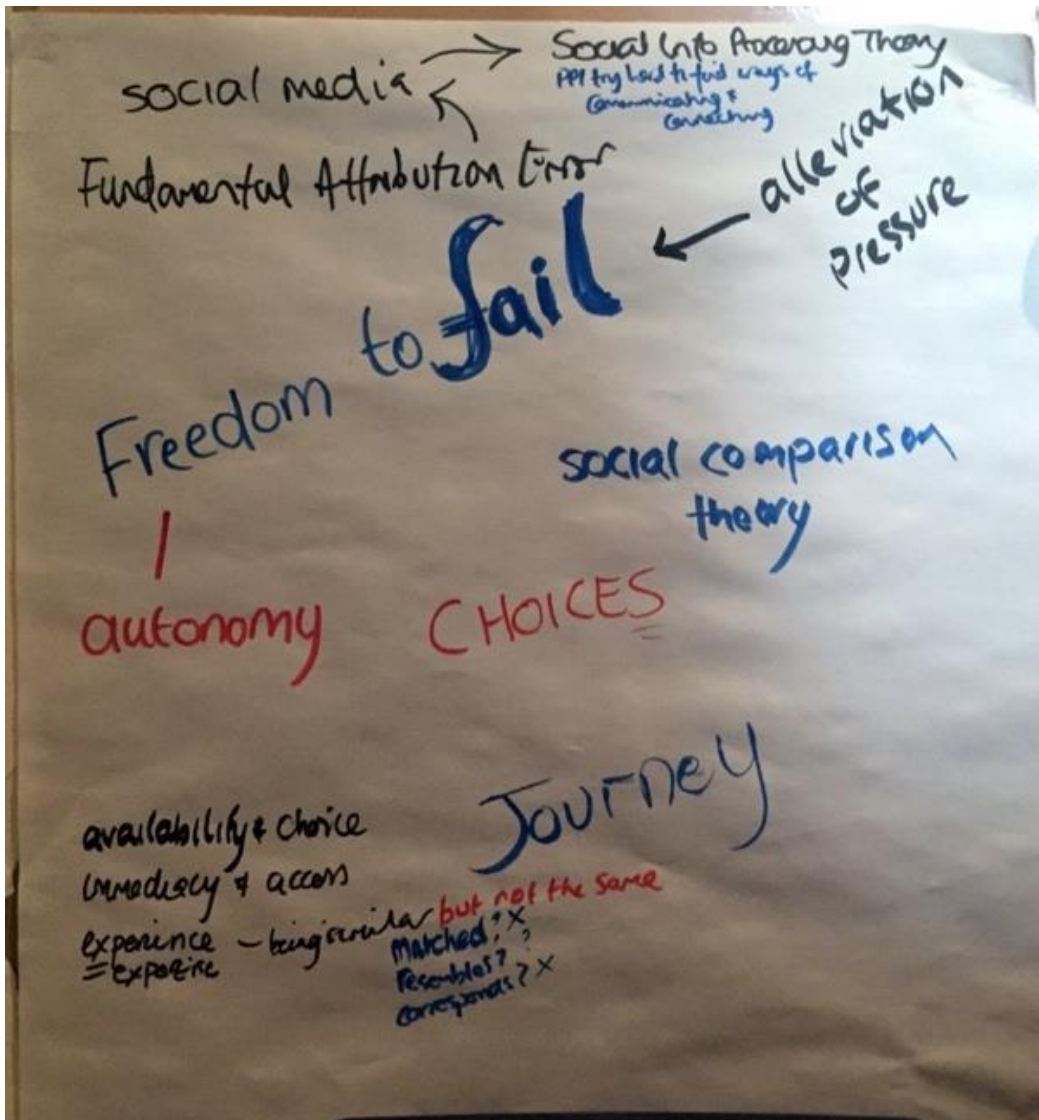 social media
Social Info Processing Theory
PPl try hard to find ways of
Communicating &
Connecting
Fundamental Attribution Error
alleviation
of
pressure
Freedom to fail
social comparison
theory
autonomy CHOICES
Journey
availability & choice
immediacy & access
experience - being similar but not the same
= expertise
Matched? X
resembles?
corresponds? X